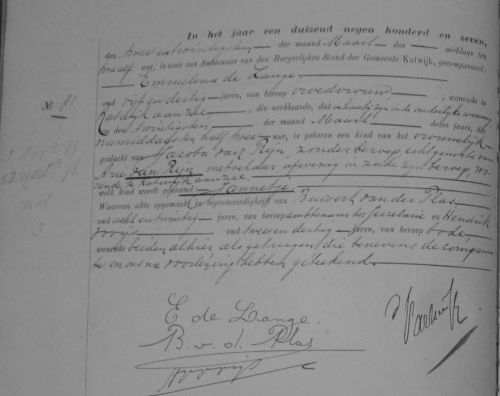 In het jaar een duizend negen honderd en zeven,
den twee en twintigsten der maand Maart des middags ten
twaalf ure, is voor ons Ambtenaar van den Burgerlijken Stand der Gemeente Katwijk, gecompareerd:
Emmelina de Lange
№ 81.
oud vijf en dertig jaren, van beroep vroedvrouw, wonende te
Katwijk aan zee, die verklaarde, dat in haar bijzijn in de ouderlijke woning
den twintigsten der maand Maart dezes jaars, des
namiddags ten half twee ure, is geboren een kind van het vrouwelijk
geslacht van Jacoba van Rijn, zonder beroep, echtgenoote van
Arie van Rijn, metselaar, afwezig in zake zijn beroep, wo-
nende te Katwijk aan zee
welk kind wordt genaamd Jannetje
Waarvan akte opgemaakt in tegenwoordigheid van Buwert van der Plas
oud acht en twintig jaren, van beroep ambtenaar ter Secretarie en Hendrik
oud twee en dertig jaren, van beroep bode
wonende beiden alhier als getuigen die benevens de comparan-
te en ons na voorlezing hebben geteekend.
E de Lange.
B. v. d. Plas